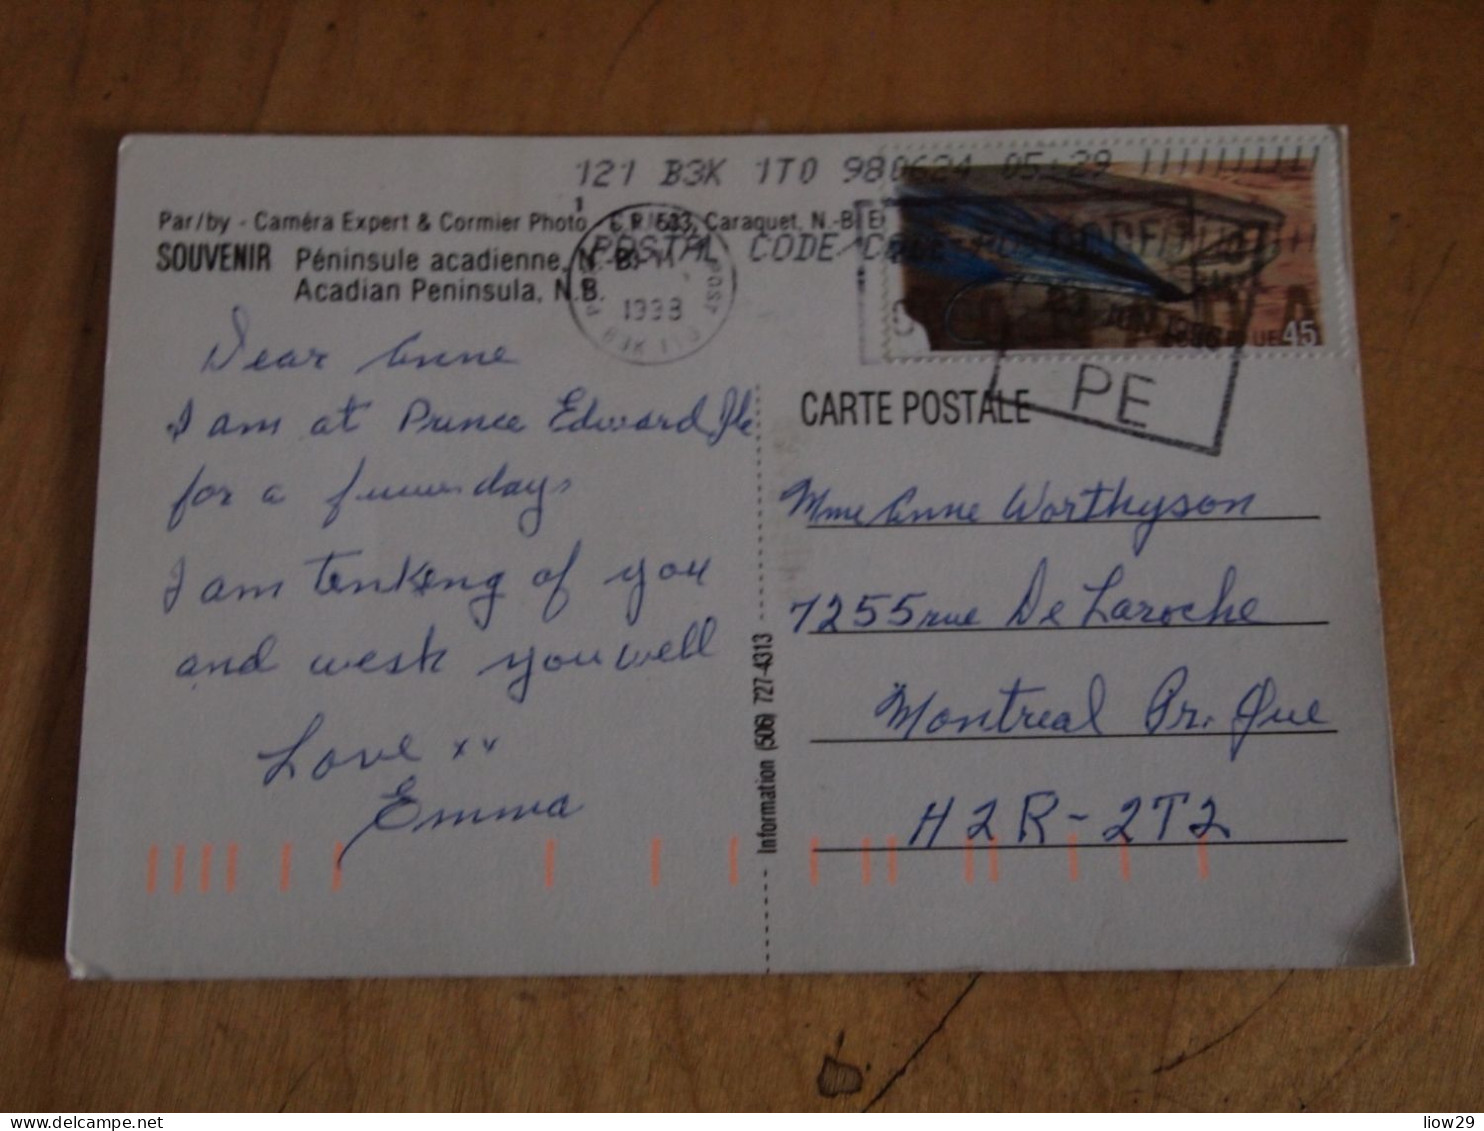 121 B3K 1T0 980624 05:29
Par/by - Caméra Expert & Cormier Photo, C.P. 533, Caraquet, N.-B. E
POSTAL CODE/CODE POSTAL
SOUVENIR Péninsule acadienne, N.-B.
Acadian Peninsula, N.B.
1998
45
PE
CARTE POSTALE
Dear Anne
I am at Prince Edward Ile
for a days
I am tenking of you
and wesh you well
Love xx
Emma
Information (506) 727-4313
Mme Anne Worthyson
7255 rue De Laroche
Montreal Pr. Que
H2R-2T2
delcampe.net
liow29